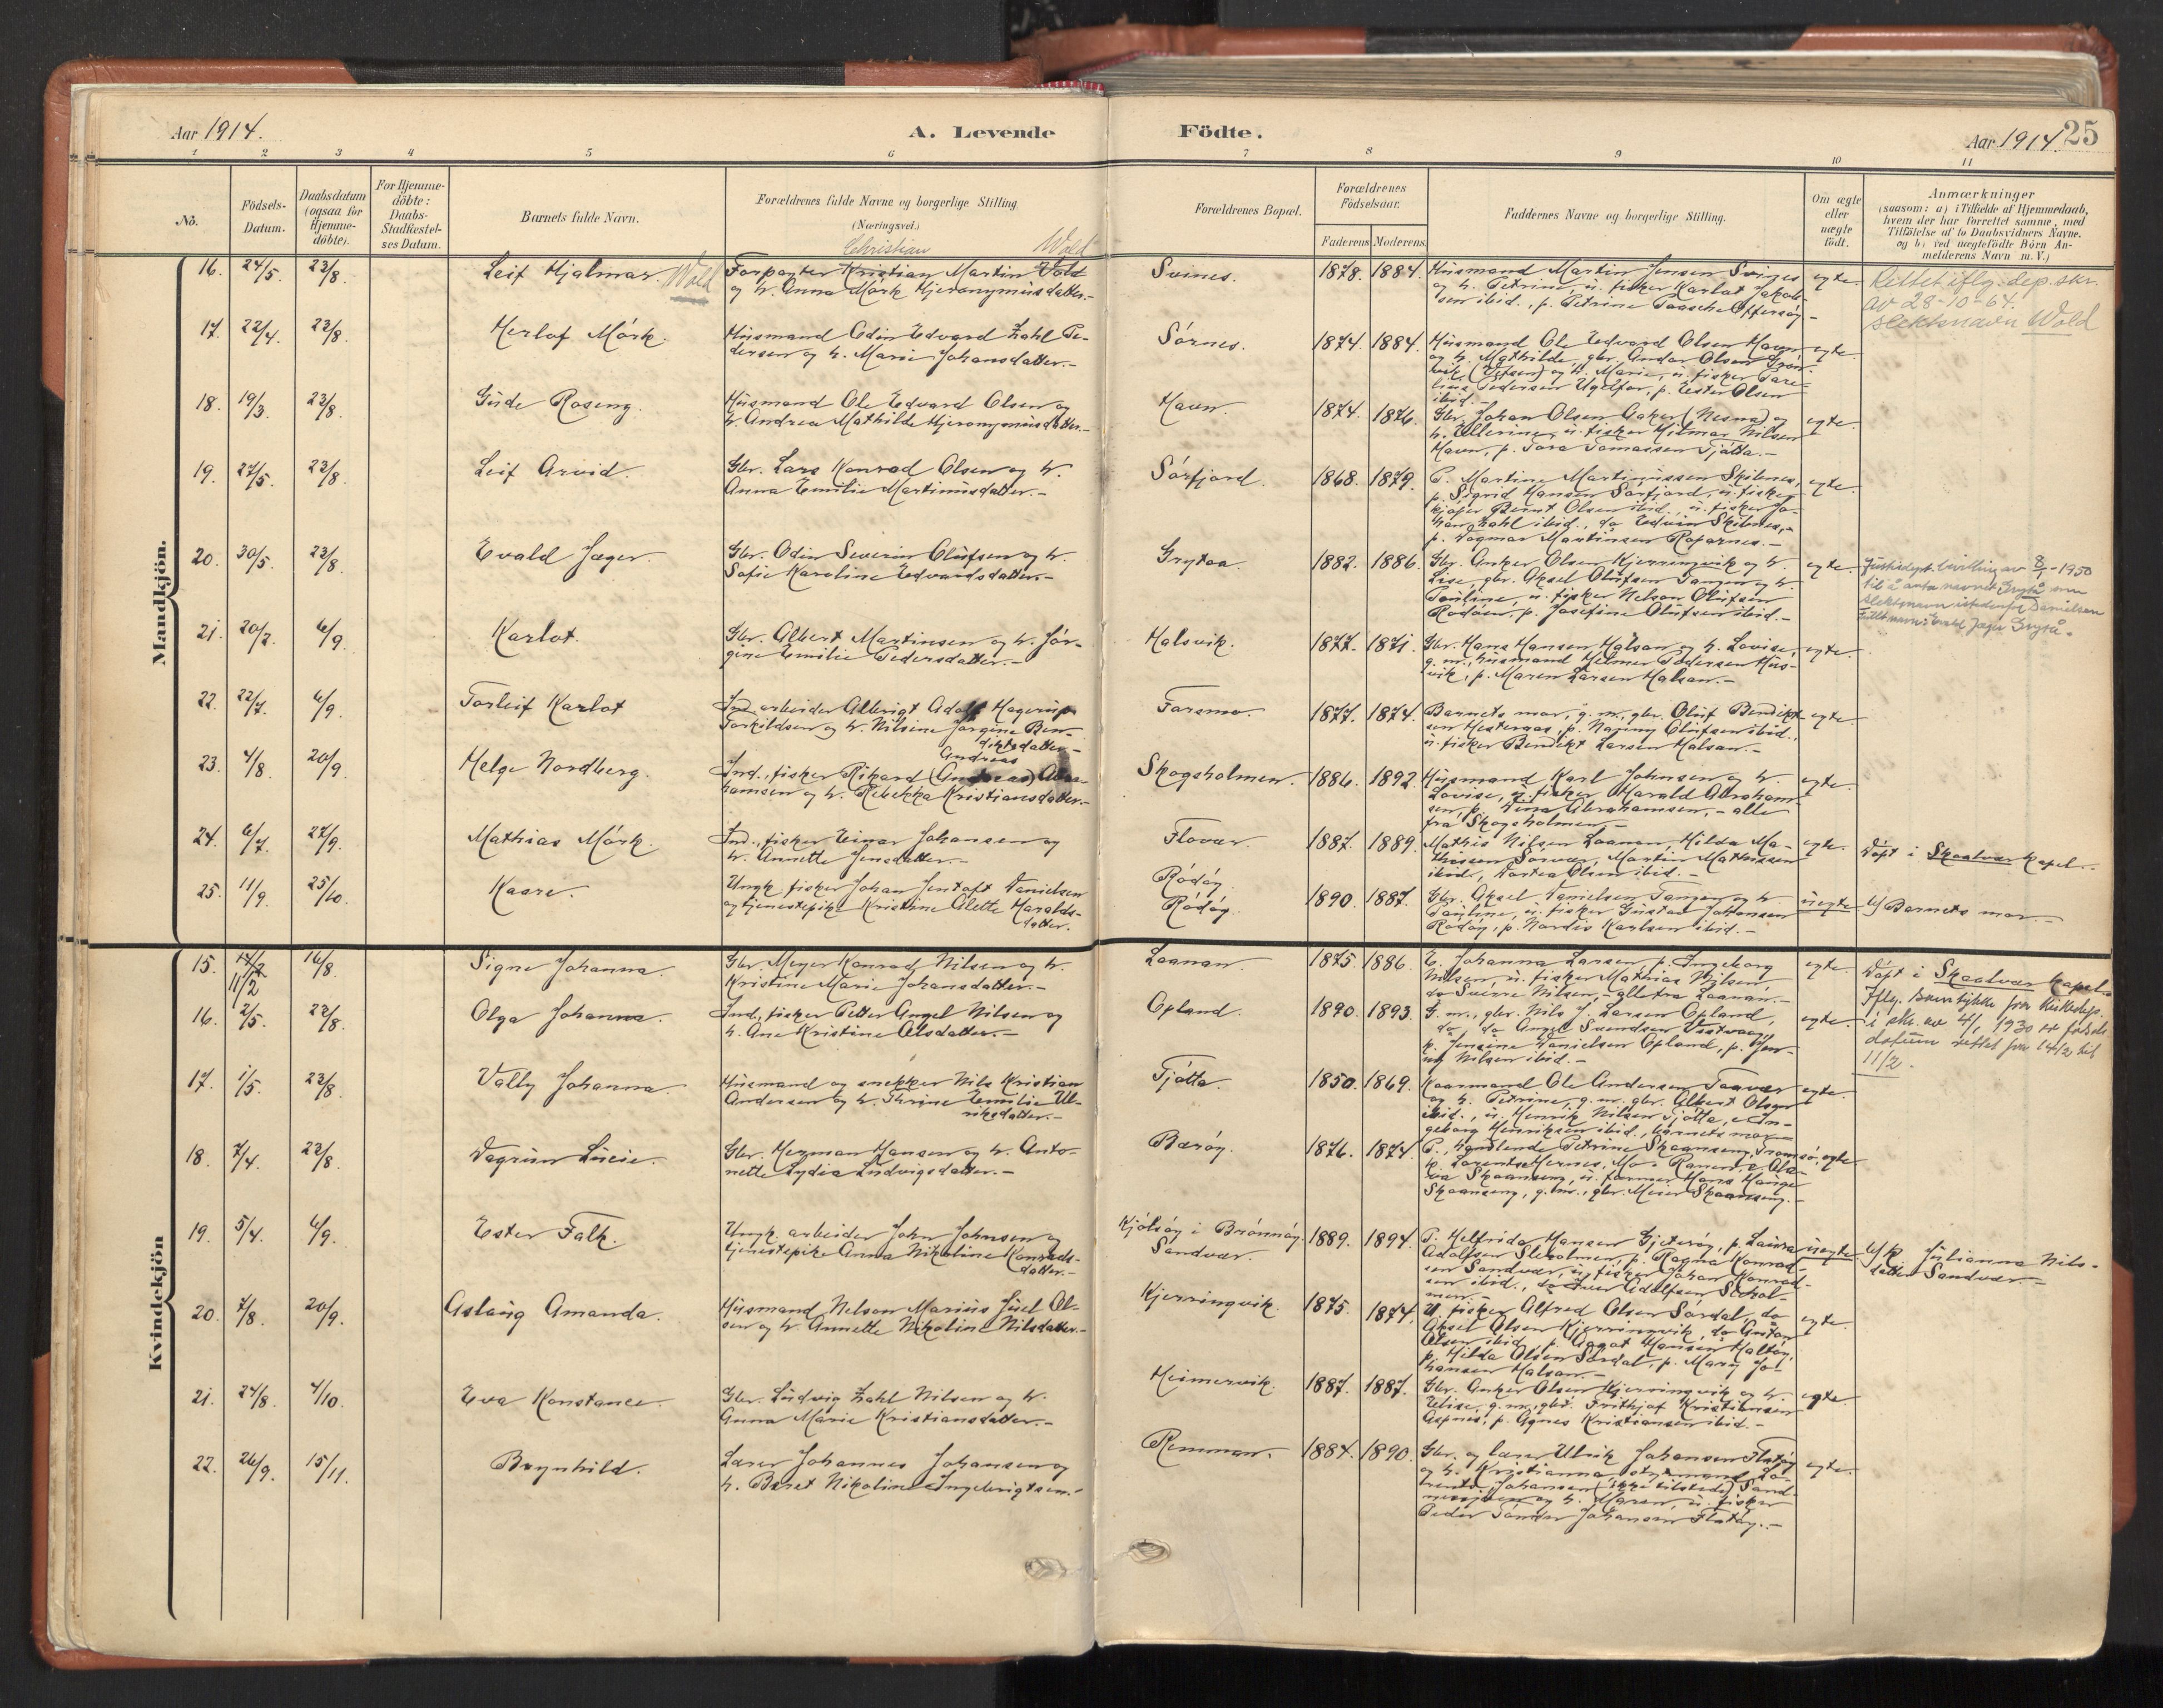 Aar 1914.
A. Levende
Födte.
Aar 1914.
25
1 2 3 4 5 6 7 8 9 10 11
No.
Födsels-
Datum.
Daabsdatum
(ogsaa for
Hjemme-
döbte).
For Hjemme-
döbte:
Daabs-
Stadfæstel-
ses Datum.
Barnets fulde Navn.
Forældrenes fulde Navne og borgerlige Stilling.
(Næringsvei.)
Forældrenes Bopæl.
Forældrenes
Födselsaar.
Faderens Moderens
Faddernes Navne og borgerlige Stilling.
Om ægte
eller
uægte
födt.
Anmærkninger
(saasom: a) i Tilfælde af Hjemmedaab,
hvem der har forrettet samme, med
Tilföielse af to Daabsvidners Navne.
og b) ved uægtefödte Börn An-
melderens Navn m. V.)
Mandkjön.
Christian Wold
16. 24/5. 23/8. Leif Hjalmar. Wold
Forpagter Kristian Martin Vold
og h. Anna Mörk Hjeronymusdatter.-
Svines. 1878. 1884.
Husmand Martin Jensen Svines
og h. Petrine, u. fisker Karlot Jakob-
sen ibid., p. Petrine Offersøy-
egte.
Rettet iflg. dep. skr.
av 28-10-64.
slektsnavn Wold
17. 22/4. 23/8. Herlof Mörk.
Husmand Odin Edvard Zahl Pe-
dersen og h. Marie Johansdatter.-
Sörnes. 1874. 1884.
Husmand Ole Edvard Olsen Havn
og h. Mathilde, gbr. Andor Olsen
vik (Vefsen) og h. Marie, u. fisker
Pedersen p. Ester Olsen
ibid.-
egte.
18. 19/3. 23/8. Gude Roseng.
Husmand Ole Edvard Olsen og
h. Andrea Mathilde Hjeronymusdatter.-
Havn. 1874. 1876.
Gbr. Johan Olsen Aaker (Nesna) og
h. Ellerine, u. fisker Hilmar Nilsen
Havn, p. Tora Tomassen Tjötta.-
egte.
19. 27/5. 23/8. Leif Arvid.
Gbr. Lars Konrad Olsen og h.
Anna Emilie Martinusdatter.-
Sörfjord. 1868. 1879.
P. Martine Martinussen Skibnes,
p. Sigrid Hansen Sörfjord, u. fisker
Bernt Olsen ibid., u. fisker Jo-
han Zahl ibid., do Edvin Skibnes,-
p. Dagmar Martinsen
egte.
20. 30/5. 23/8. Evald Jæger.
Gbr. Odin Severin Olufsen og h.
Sofie Karoline Edvardsdatter.-
Grytaa. 1882. 1886.
Gbr. Anker Olsen Kjerringvik og h.
Lise, gbr. Aksel Olufsen Tangen og h.
Pauline, u. fisker Nelson Olufsen
Rødøen, p. Josefine Olufsen ibid.-
egte.
Justisdept. bevilling av 8/1-1950
til å anta navnet Grytå som
slektsnavn istedenfor Danielsen
Fullt navn: Evald Jæger Grytå.
21. 20/7. 6/9. Karlot.
Gbr. Albert Martinsen og h. Jör-
gine Emilie Pedersdatter.-
Halsvik. 1877. 1871.
Gbr. Hans Hansen Halsan og h. Lovise,
g. m., husmand Helmer Pedersen Hus-
vik, p. Maren Larsen Halsan.-
egte.
22. 22/7. 6/9. Torleif Karlot
Ind. arbeider Albrigt Adolf Hagerup
Torkildsen og h. Nilsine Jörgine Ben-
diktsdatter-
Forsmo. 1877. 1874.
Barnets mor, g. m., gbr. Oluf Bendikt-
sen p. Nanny Olufsen ibid.,
u. fisker Bendikt Larsen Halsan.-
egte.
23. 4/8. 20/9. Helge Nordberg.
Andreas
Ind., fisker Rikard (Andreas) Abra-
hamsen og h. Rebekka Kristiansdatter.-
Skogsholmen. 1886. 1892.
Husmand Karl Johnsen og h.
Lovise, u. fisker Harald Abraham-
sen, p. Nina Abrahamsen,- alle
fra Skogsholmen.-
egte.
24. 6/7. 27/9. Mathias Mörk.
Ind., fisker Einar Johansen og
h. Annette Jensdatter.-
Flovær. 1887. 1889.
Mathis Nilsen Laanan, Hilda Ma-
thissen Sorvær, Martin Mathissen
ibid., Dortea Olsen ibid.-
egte.
Döpt i Skaalvær kapel.-
25. 11/9. 25/10. Kaare.
Ungk. fisker Johan Jentoft Danielsen
og tjenestepike Kristine Alette Haralds-
datter.
Rödöy.
Rödöy. 1890. 1887.
Gbr. Aksel Danielsen Tangen og h.
Pauline, u. fisker Gustav Johansen
Rödöy, p. Nordis Karlsen ibid.-
uegte.
b) Barnets mor.-
Kvindekjön
15. 14/2 11/2 16/8. Signe Johanna.
Gbr. Meyer Konrad Nilsen og h.
Kristine Marie Johansdatter.-
Laanan. 1875. 1886.
E. Johanna Larsen, p. Ingeborg
Nilsen, u. fisker Mathias Nilsen,
do Sverre Nilsen,- alle fra Laanan.-
egte.
Döpt i Skaalvær kapel.
Iflg. samtykke fra Kirkedep.
i skr. av 4/1 1930 er födsels
datum rettet fra 14/2 til
11/2.
16. 2/5. 23/8. Olga Johanna.
Ind., fisker Petter Angel Nilsen og
h. Ane Kristine Olsdatter.-
Opland. 1890. 1893.
G. m., gbr. Nils J. Larsen Opland,
do, do Angel Svendsen
p. Jensine Danielsen Opland, p. Jen-
ny Nilsen ibid.-
egte.
17. 1/5. 23/8. Vally Johanna.
Husmand og snekker Nils Kristian
Andersen og h. Thrine Emilie Ul-
riksdatter.-
Tjötta. 1850. 1869.
Kaarmand Ole Andersen
og h. Petrine, g. m. gbr. Albert Olsen
ibid., u. Henrik Nilsen Tjötta, e. In-
geborg Henriksen ibid., barnets mor.-
egte.
18. 7/4. 23/8. Dagrun Lucie.
Gbr. Herman Hansen og h. Anto-
nette Lydia Ludvigsdatter.-
Bæröy. 1876. 1874.
P., handlende Petrine Skaanseng, Tromsö,
p. Mo i Ranen,
Skaanseng, u. farmer Hans Hauge
Skaanseng, g. m., gbr. Meier Skaanseng.-
egte.
19. 5/4. 6/9. Ester Falk.
Ungk. arbeider John Johnsen og
tjenestepike Anna Nikoline Konrads-
datter.-
Kjölsöy i Brönnöy.
Sandvær. 1889. 1894.
P. Helfrida Hansen Gjeteröy, p. Laura
Adolfsen p. Ragna Konrad-
sen Sandvær, u. fisker Johan Konrad-
sen ibid., do Iver Adolfsen
men.-
uegte.
b) p. Julianna Nils-
datter Sandvær.-
20. 7/8. 20/9. Aslaug Amanda.
Husmand Nelson Marius Juel Ol-
sen og h. Annette Nikoline Nilsdatter.-
Kjerringvik. 1875. 1874.
U. fisker Alfred Olsen Sördal, do
Aksel Olsen Kjerringvik, do Gustav
Olsen ibid., p. Aagot Hansen
p. Hilda Olsen Sördal, p. Mary Jo-
hansen Halsan.-
egte.
21. 24/8. 4/10. Eva Konstance.
Gbr. Ludvig Zahl Nilsen og h.
Anna Marie Kristiansdatter.-
Heimervik. 1887. 1887.
Gbr. Anker Olsen Kjerringvik og h.
Elise, g. m., gbr. Frithjof Kristiansen
Aspnes, p. Agnes Kristiansen ibid.-
egte.
22. 26/9. 15/11. Brynhild.
Lærer Johannes Johansen og
h. Beret Nikoline Ingebrigtsen.-
Remman. 1884. 1890.
Gbr. og lærer Ulrik Johansen Flatöy
og h. Kristianna, styrmand La-
rents Johansen (ikke tilstede) Sand-
nessjöen og h. Maren, u. fisker
Peder Johansen Flatöy.-
egte.